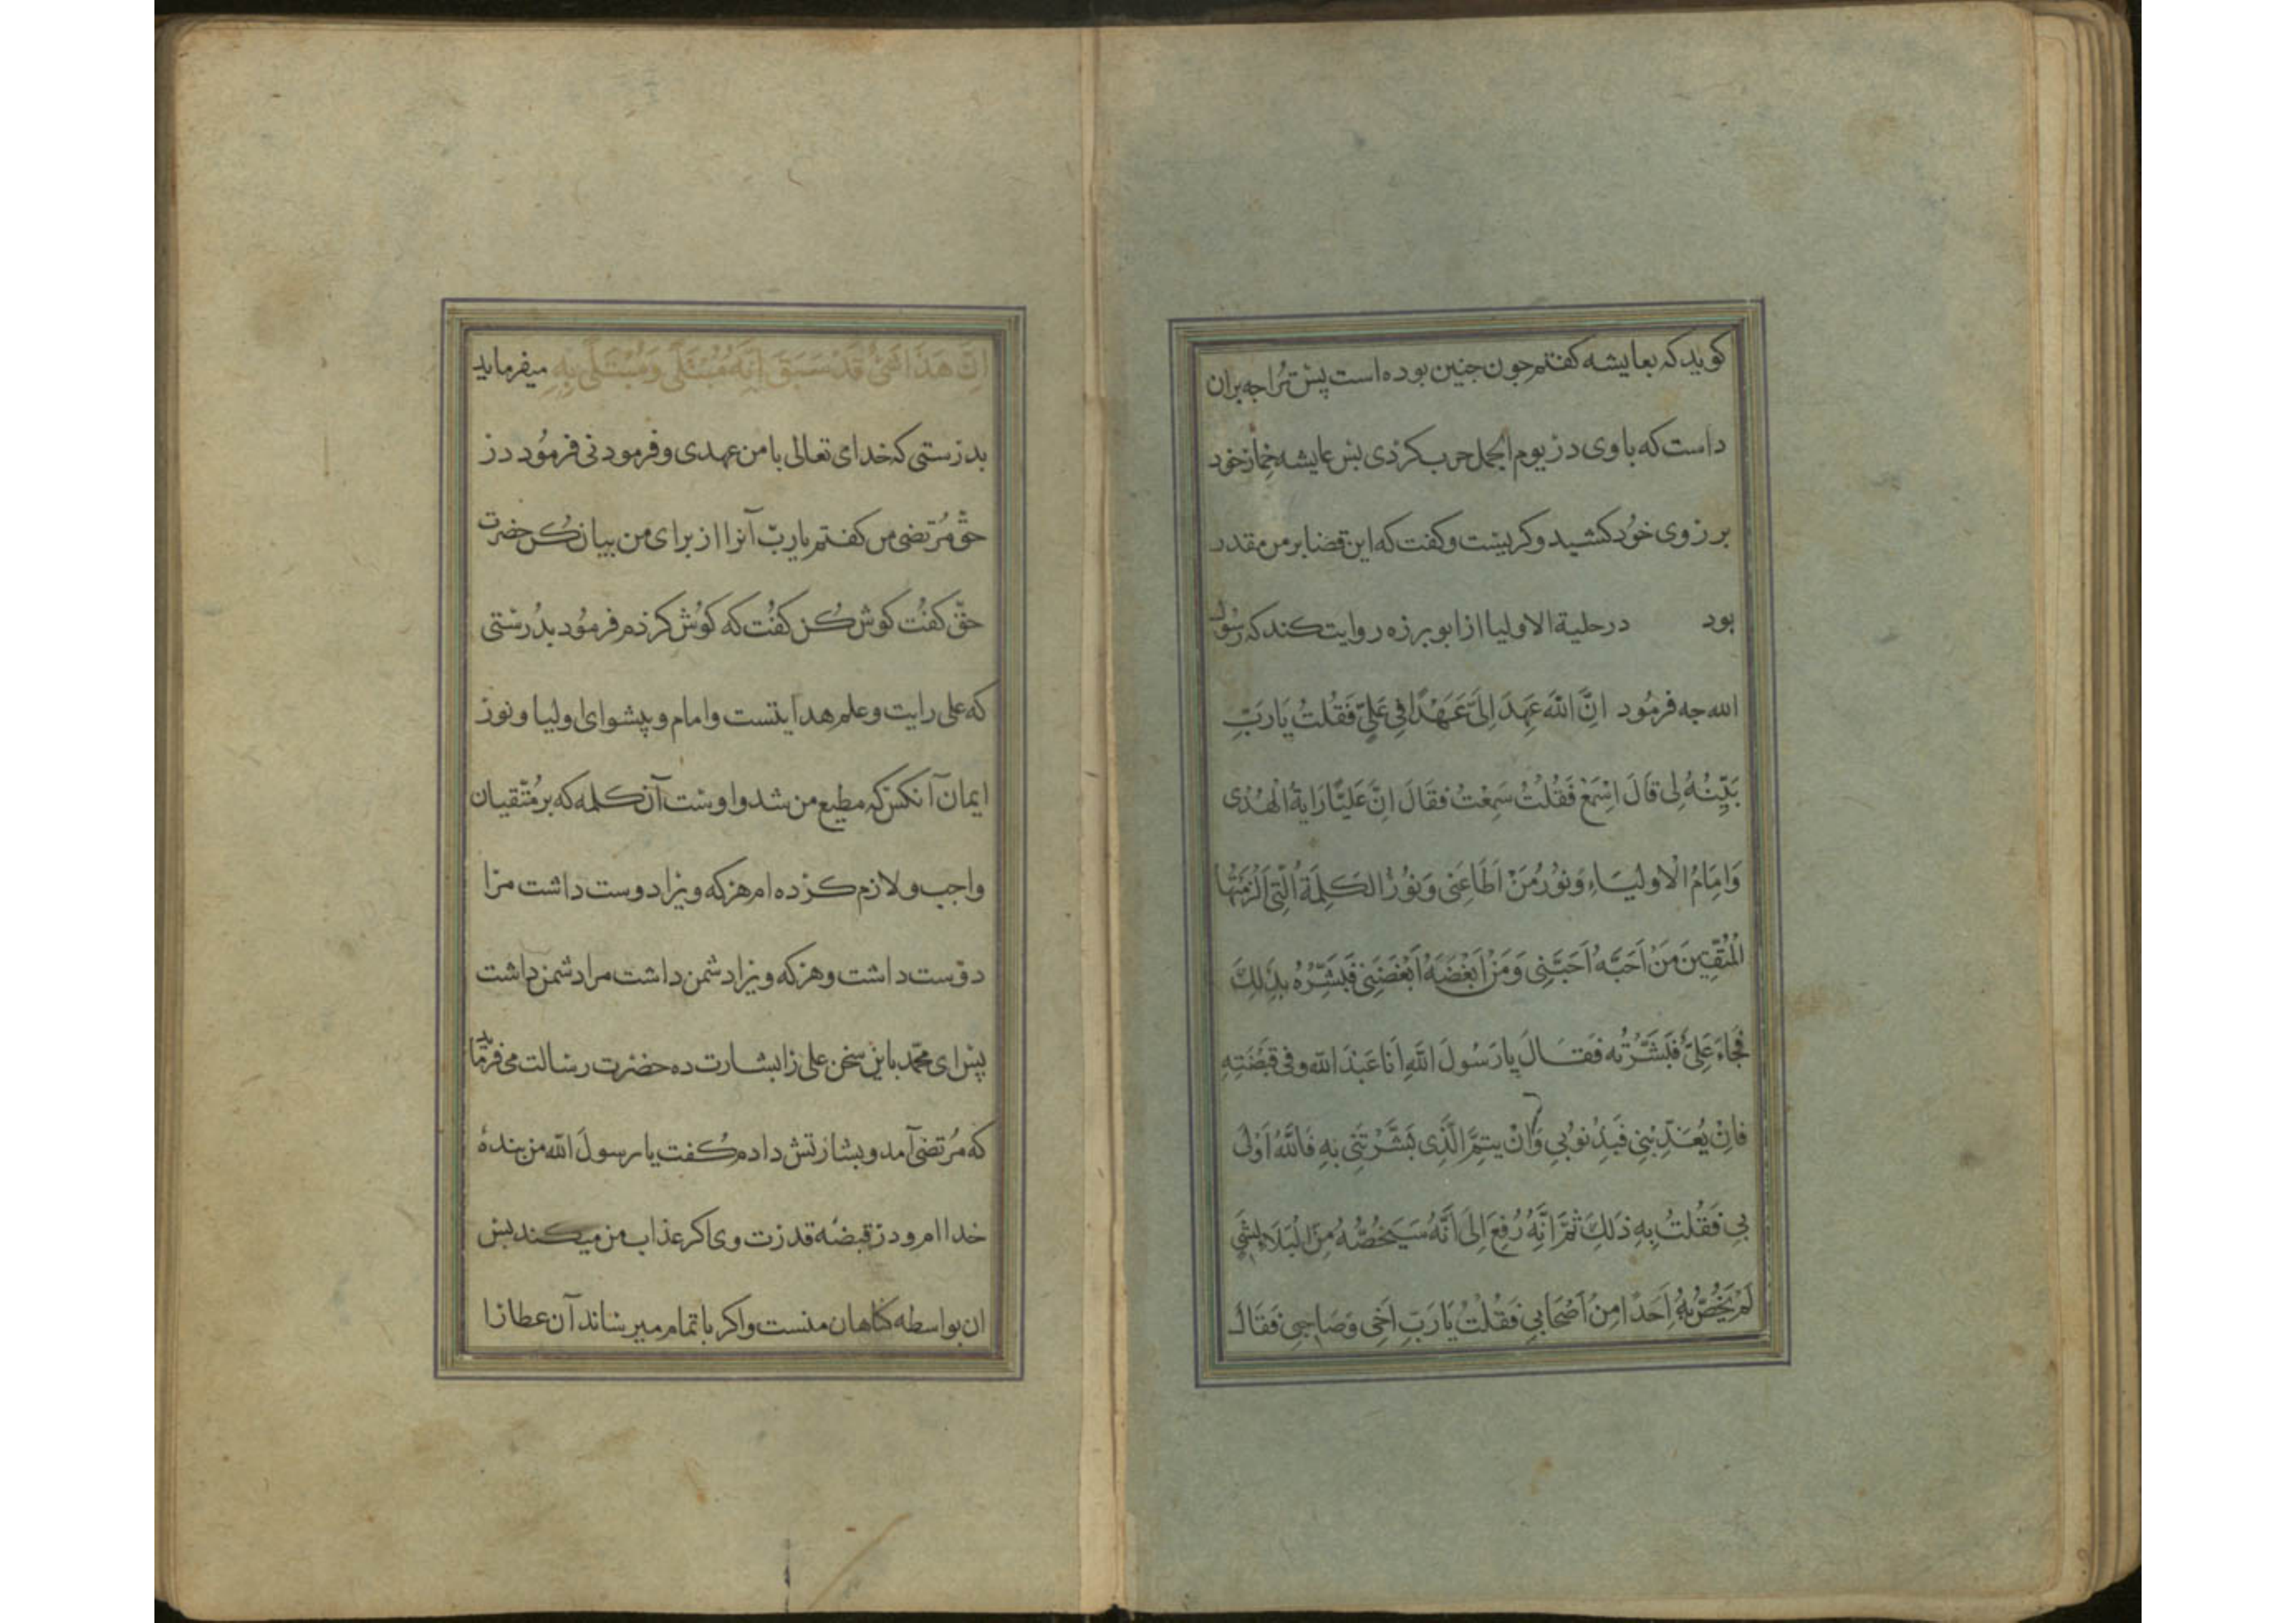 کوید که بعایشه کفتم جون جنین بوده است پس ترا جه بران
داست که با وی در یوم الجمل حرب کردی بس عایشه خمار خود
بر روی خود کشید و کریست و کفت که این قضا بر من مقدر
بود درحلیة الاولیا از ابو برزه روایت کند که رسول
الله جه فرمُود اِنَّ اللهَ عَهِدَ اِلَیَّ عَهْدًا فِی عَلِیٍّ فَقُلتُ یَارَبِّ
بَیِّنْهُ لِی قَالَ اسْمَعْ فَقُلْتُ سَمِعْتُ فَقَالَ اِنَّ عَلِیًّا رَایَةُ الْهُدٰی
وَاِمَامُ الْاولیَاءِ وَنُورُ مَنْ اَطَاعَنِی وَنُورُ الکَلِمَةُ الَّتِی اَلْزَمْتُهَا
الْمُتَّقِینَ مَنْ اَحَبَّهُ اَحَبَّنِی وَمَنْ اَبْغَضَهُ اَبْغَضَنِی فَبَشِّرْهُ بِذٰلِکَ
فَجَاءَ عَلِیٌّ فَبَشَّرْتُه فَقَالَ یَارَسُولَ اللهِ اَنَا عَبْدَ الله وفی قبْضَتِهِ
فَاِنْ یُعَذِّبْنِی فَبِذُنُوبِی وَاِنْ یتِمَّ الَّذِی بَشَّرْتَنِی بِهِ فَاللهُ اَوْلٰی
بِی فَقُلْتُ بِهِ ذٰلِکَ ثُمَّ اِنَّهُ رُفِعَ اِلَیَّ اَنَّهُ سَیَخُصُّهُ مِنَ الْبَلَاءِ بِشَیٍ
لَمْ یَخُصَّ بِهِ اَحَدًا مِنْ اَصْحَابِی فَقُلْتُ یَارَبِّ اَخِی وَصَاحِبِی فَقَالَ
اِنَّ هَذَا شَیْءٌ قَدْ سَبَقَ اِنَّهُ مُبْتَلًی وَمُبْتَلًی بِهِ میفرماید
بدرستی که خدای تعالی با من عهدی و فرمودنی فرمُود در
حق مُرتضی من کفتم یارب آنرا از برای من بیان کُن حضرت
حقّ کفُت کوش کُن کفُت که کوُش کردم فرمُود بدُرستی
که علی رایت و علم هدایتست و امام و پیشوای اولیا و نور
ایمان آنکس که مطیع من شد و اوست آن کلمه که بر مُتّقیان
واجب و لازم کرده ام هرکه ویرا دوست داشت مرا
دوست داشت و هرکه ویرا دشمن داشت مرا دشمن داشت
پس ای محمّد باین سخن علی را بشارت ده حضرت رسالت می فرماید
که مُرتضی آمد و بشارتش دادم کُفت یا رسولَ الله من بندۀ
خدا ام و در قبضه قدرت وی اکر عذاب من میکند بس
ان بواسطه کناهان منست و اکر با تمام میرساند آن عطا را